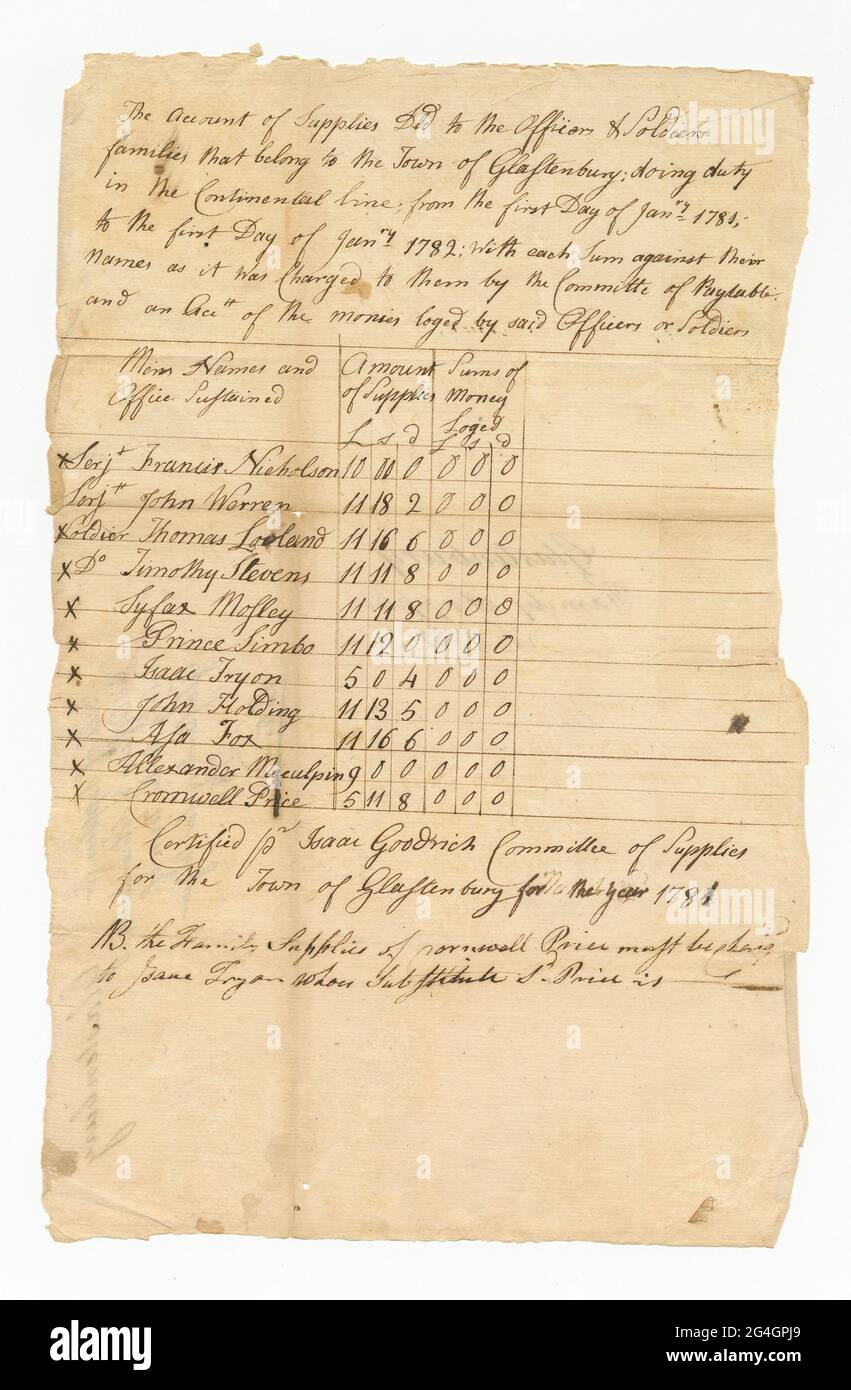 The Account of Supplies DDd to the Officers & Soldiers
families that belong to the Town of Glastenbury; doing duty
in the Continental line; from the first Day of Janry 1781,
to the first Day of Janry 1782; with each Sum against their
names as it was Charged to them by the Committe of Paytable.
and an Acctt of the monies loged by said Officers or Soldiers
Mens Names and Amount Sums of
Office Sustained of Supplies Money
Loged
£ s d £ s d
x Serjt Francis Nicholson 10 00 0 0 0 0
Serjtt John Werren 11 18 2 0 0 0
x Soldier Thomas Loveland 11 16 6 0 0 0
x Do Timothy Stevens 11 11 8 0 0 0
x Syfax Mosley 11 11 8 0 0 0
x Prince Simbo 11 12 0 0 0 0
x Isaac Tryon 5 0 4 0 0 0
x John Holding 11 13 5 0 0 0
x Asa Fox 11 16 6 0 0 0
x Allexander Mcculpin 9 0 0 0 0 0
x Cromwell Price 5 11 8 0 0 0
Certified pr Isaac Goodrich Committee of Supplies
for the Town of Glastenbury for the year 1781
NB. the Family Supplies of Cornwell Price must be
to Isaac Tryon whose Substitute Sd Price is
alamy
Image ID: 2G4GPJ9
www.alamy.com